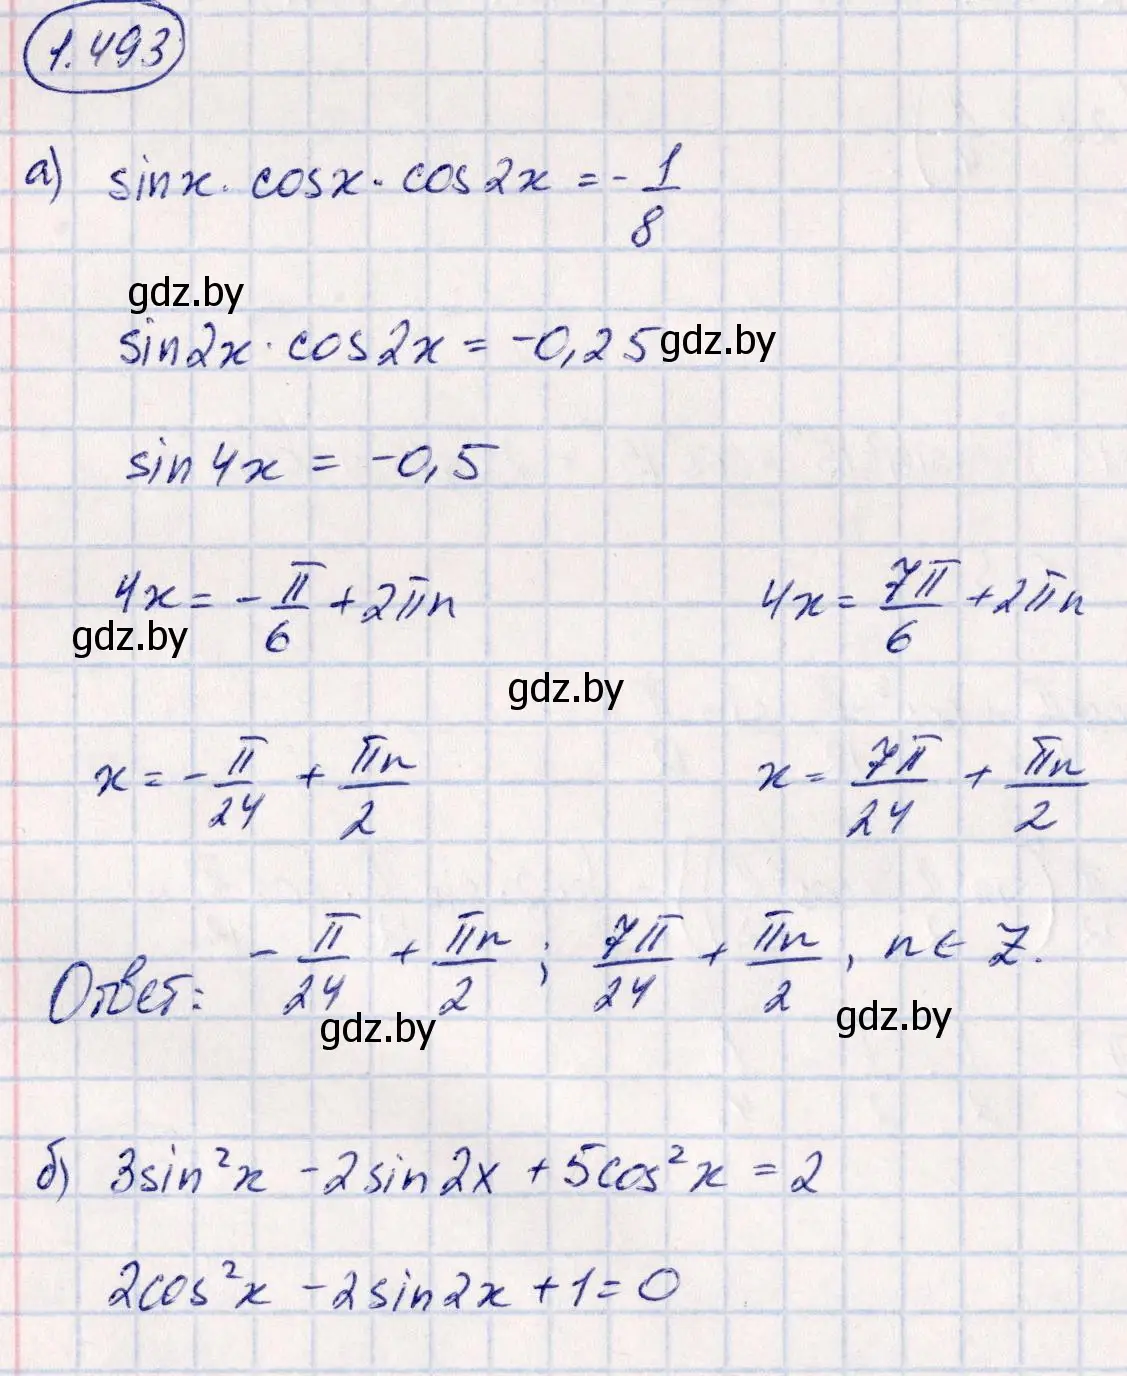 1.493
а) sinx · cosx · cos2x = -1/8
gdz.by
sin2x · cos2x = -0,25 gdz.by
sin4x = -0,5
4x = -π/6 + 2πn 4x = 7π/6 + 2πn
gdz.by
gdz.by
x = -π/24 + πn/2 x = 7π/24 + πn/2
Ответ: -π/24 + πn/2 ; 7π/24 + πn/2 , n ∈ Z.
gdz.by gdz.by
б) 3sin²x - 2sin2x + 5cos²x = 2
2cos²x - 2sin2x + 1 = 0